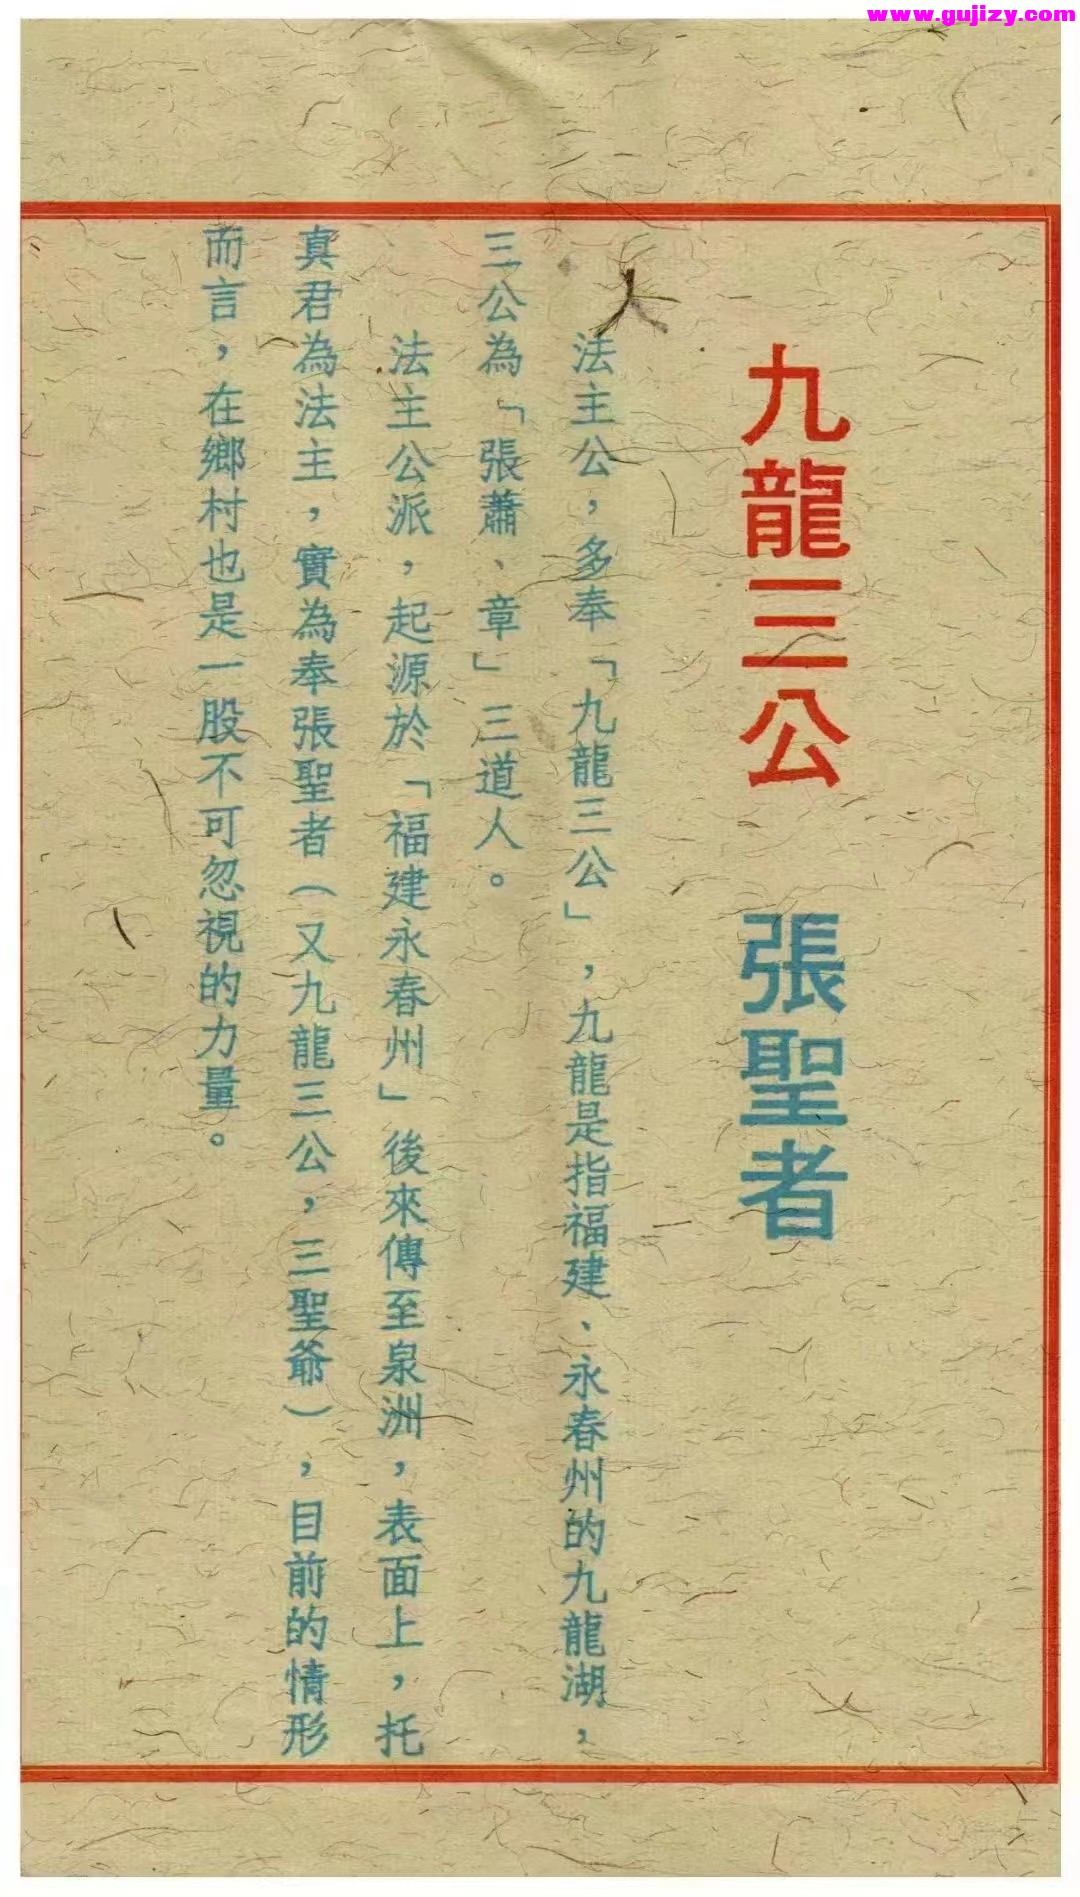 www.gujizy.com
九龍三公 張聖者
法主公，多奉「九龍三公」，九龍是指福建、永春州的九龍湖，
三公為「張蕭、章」三道人。
法主公派，起源於「福建永春州」後來傳至泉洲，表面上，托
真君為法主，實為奉張聖者（又九龍三公，三聖爺），目前的情形
而言，在鄉村也是一股不可忽視的力量。